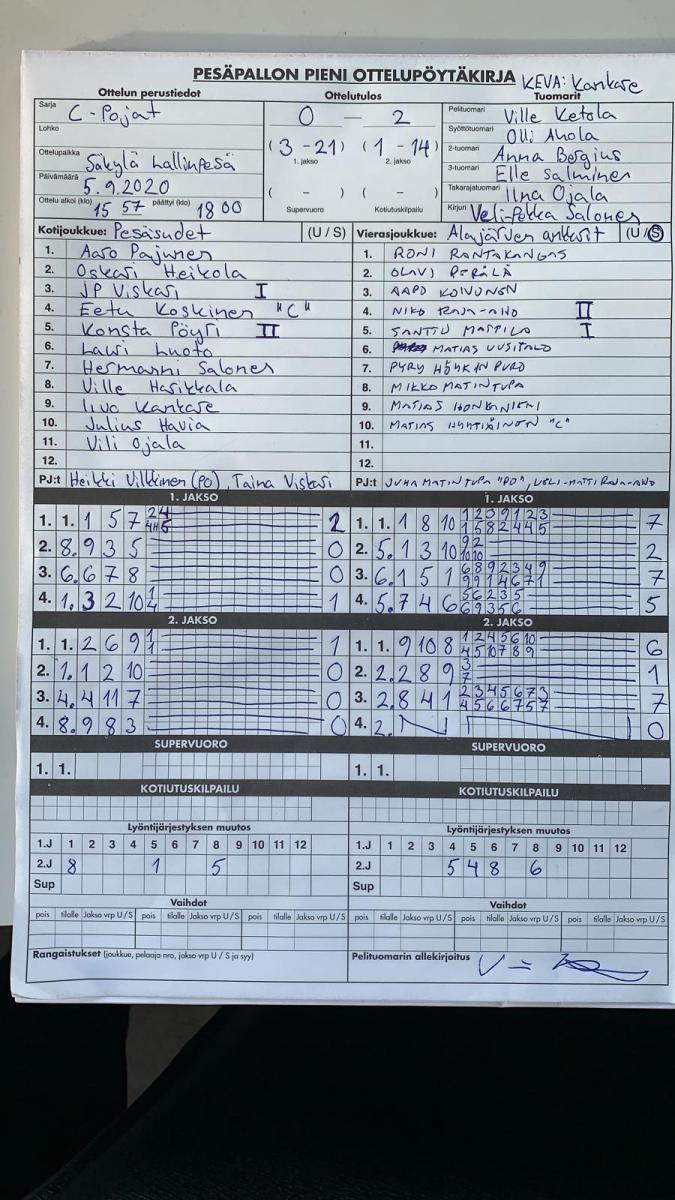 PESÄPALLON PIENI OTTELUPÖYTÄKIRJA KEVA: Kankare
Ottelun perustiedot Ottelutulos Tuomarit
Sarja C-Pojat
Lohko
Ottelupaikka Säkylä hallinpesä
Päivämäärä 5.9.2020
Ottelu alkoi (klo) 15 57 päättyi (klo) 18 00
0 – 2
(3 - 21) (1 - 14)
1. jakso 2. jakso
( - ) ( - )
Supervuoro Kotiutuskilpailu
Pelituomari Ville Ketola
Syöttötuomari Olli Ahola
2-tuomari Anna Bergius
3-tuomari Elle Salminen
Takarajatuomari Ilna Ojala
Kirjuri Veli-Pekka Salonen
Kotijoukkue: Pesäsudet (U / S)
1. Aaro Pajunen
2. Oskari Heikola
3. JP Viskari I
4. Eetu Koskinen "C"
5. Konsta Pöyri II
6. Lauri Luoto
7. Hermanni Salonen
8. Ville Harikkala
9. Iivo Kankare
10. Julius Havia
11. Vili Ojala
12.
PJ:t Heikki Vilkkinen (PO), Taina Viskari
Vierasjoukkue: Alajärven ankkurit (U / S)
1. RONI RANTAKANGAS
2. OLAVI PERÄLÄ
3. AAPO KOIVUNEN
4. NIKO RAJA-AHO II
5. SANTTU MATTILA I
6. MATIAS UUSITALO
7. PYRY HÖYKINPURO
8. MIKKO MATINTUPA
9. MATIAS HONKANIEMI
10. MATIAS "C"
11.
12.
PJ:t JUHA MATINTUPA "PO", VELI-MATTI RAJA-AHO
1. JAKSO
1. 1. 1 5 7 2
2. 8. 9 3 5 0
3. 6. 6 7 8 0
4. 1. 3 2 10 1 4 1
2. JAKSO
1. 1. 2 6 9 1 1 1
2. 1. 1 2 10 0
3. 4. 4 11 7 0
4. 8. 9 8 3 0
SUPERVUORO
1. 1.
KOTIUTUSKILPAILU
Lyöntijärjestyksen muutos
1.J 1 2 3 4 5 6 7 8 9 10 11 12
2.J 8 1 5
Sup
Vaihdot
pois tilalle Jakso vrp U / S pois tilalle Jakso vrp U / S pois tilalle Jakso vrp U / S
Rangaistukset (joukkue, pelaaja nro, jakso vrp U / S ja syy)
1. JAKSO
1. 1. 1 8 10 1 2 3 9 1 2 3 7
1 5 8 2 4 4 5
2. 5. 1 3 10 9 2 2
10 10
3. 6. 1 5 1 6 8 9 2 3 4 9 7
9 9 1 4 6 7 1
4. 5. 7 4 6 5 6 2 3 5 5
6 9 3 5 6
2. JAKSO
1. 1. 9 10 8 1 2 4 5 6 10 6
4 5 10 7 8 9
2. 2. 2 8 9 3 1
7
3. 2. 8 4 1 2 3 4 5 6 7 3 7
4 5 6 6 7 5 7
4. 2. 0
SUPERVUORO
1. 1.
KOTIUTUSKILPAILU
Lyöntijärjestyksen muutos
1.J 1 2 3 4 5 6 7 8 9 10 11 12
2.J 5 4 8 6
Sup
Vaihdot
pois tilalle Jakso vrp U / S pois tilalle Jakso vrp U / S pois tilalle Jakso vrp U / S
Pelituomarin allekirjoitus